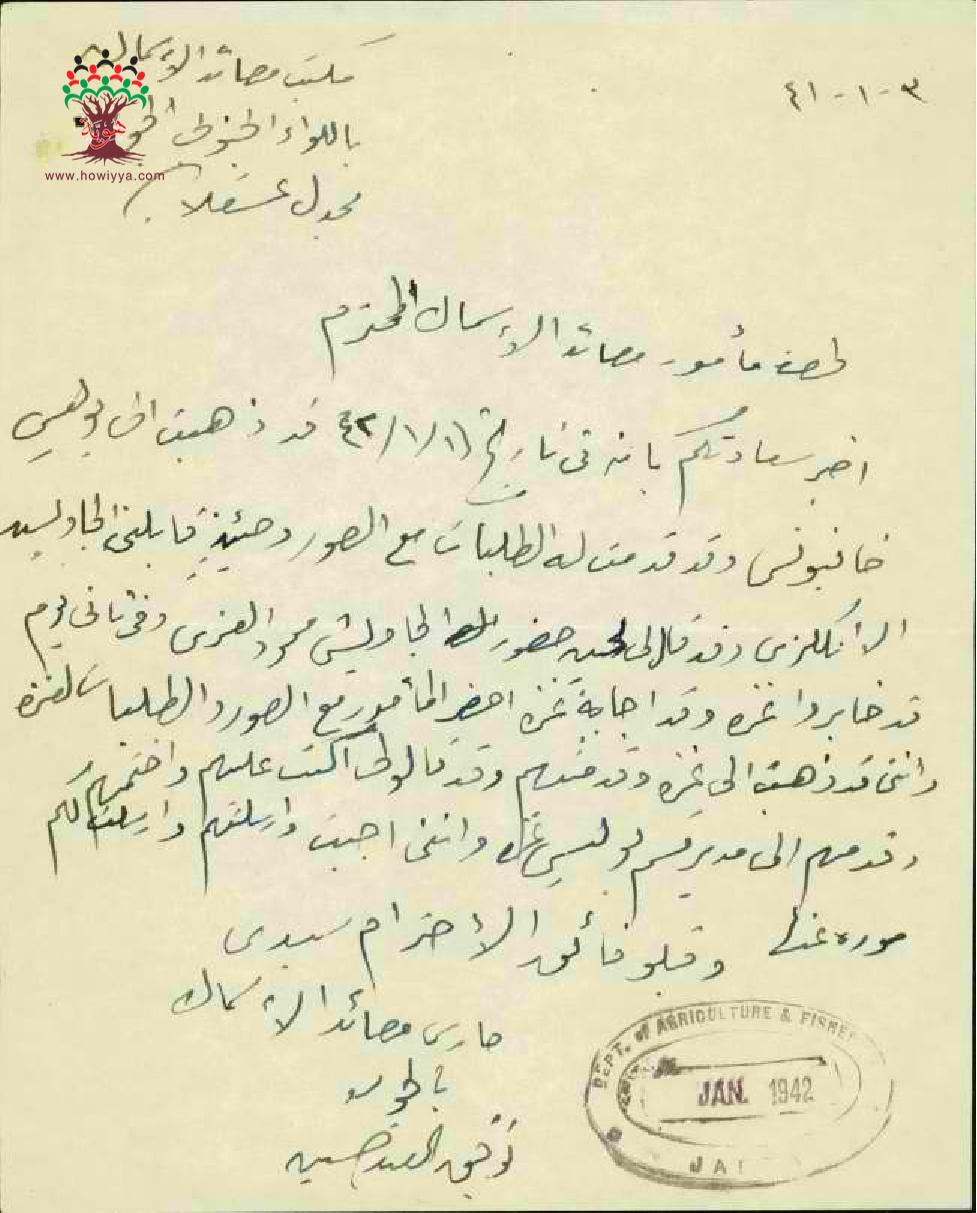 مكتب مصائد الاسماك
باللواء الجنوبي
مجدل عسقلان
www.howiyya.com
٣-١-٤١
لحضرة مأمور مصائد الأسماك المحترم
اخبر سعادتكم بانه في تاريخ ١/١/٤٢ قد ذهبت الى بوليس
خانيونس وقد قدمت له الطلبات مع الصور وحينئذٍ قابلني الجاويش
الانكليزي وقد قال لي حضور الجاويش محمود الغزي وفي ثاني يوم
قد خابروا غزه وقد اجابة غزه احضر المأمور مع الصور والطلبات لغزة
وانني قد ذهبت الى غزه وقدمتهم وقد قالو لي اكتب عليهم واختمهم
وقدمهم الى مدير قسم بوليس غزه وانني اجبت وارسلتهم وارسلت لكم
صوره عنها وقبلو فائق الاحترام سيدي
حارس مصائد الاسماك
توفيق
DEPT. of AGRICULTURE & FISHE
JAN. 1942
JAF